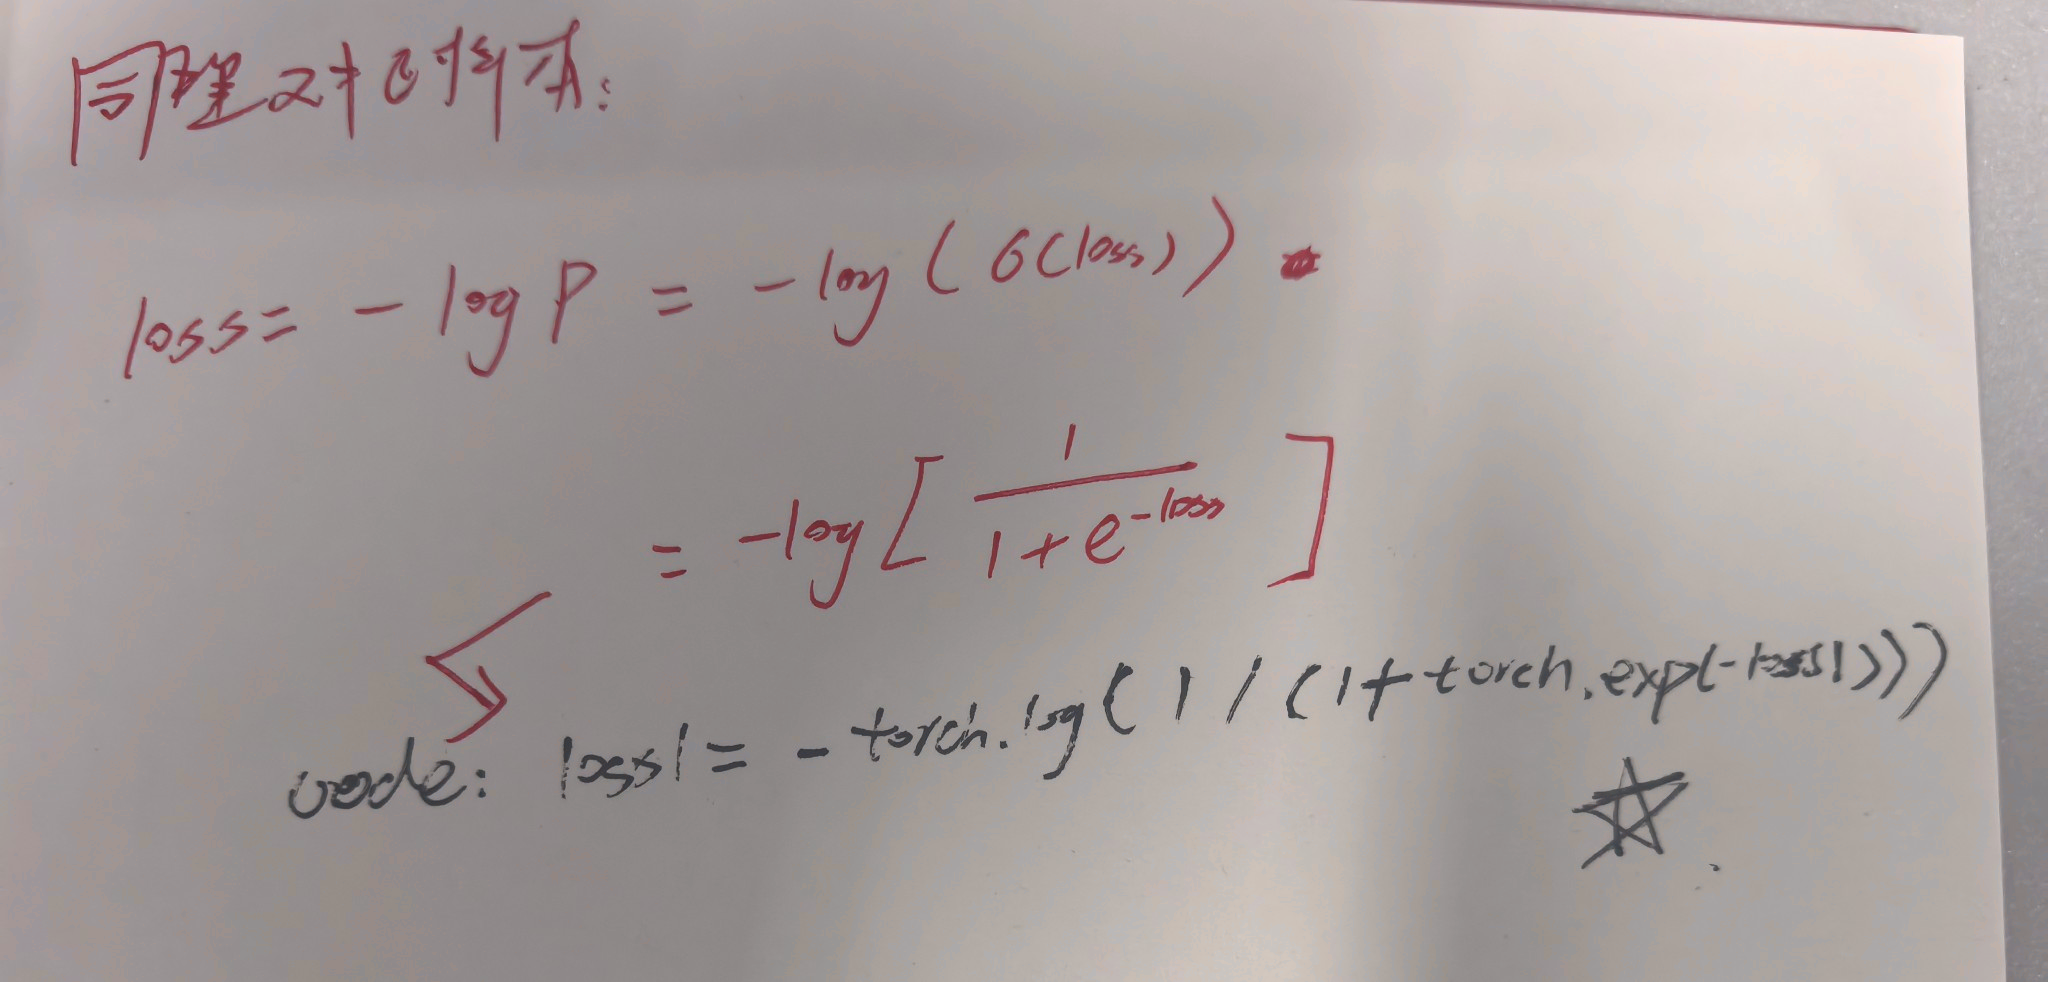 同理对0样本:
loss = - log P = - log ( σ(loss) )
= -log [ 1 / (1 + e^-loss) ]
code: loss1 = - torch.log( 1 / (1 + torch.exp(-loss1)))